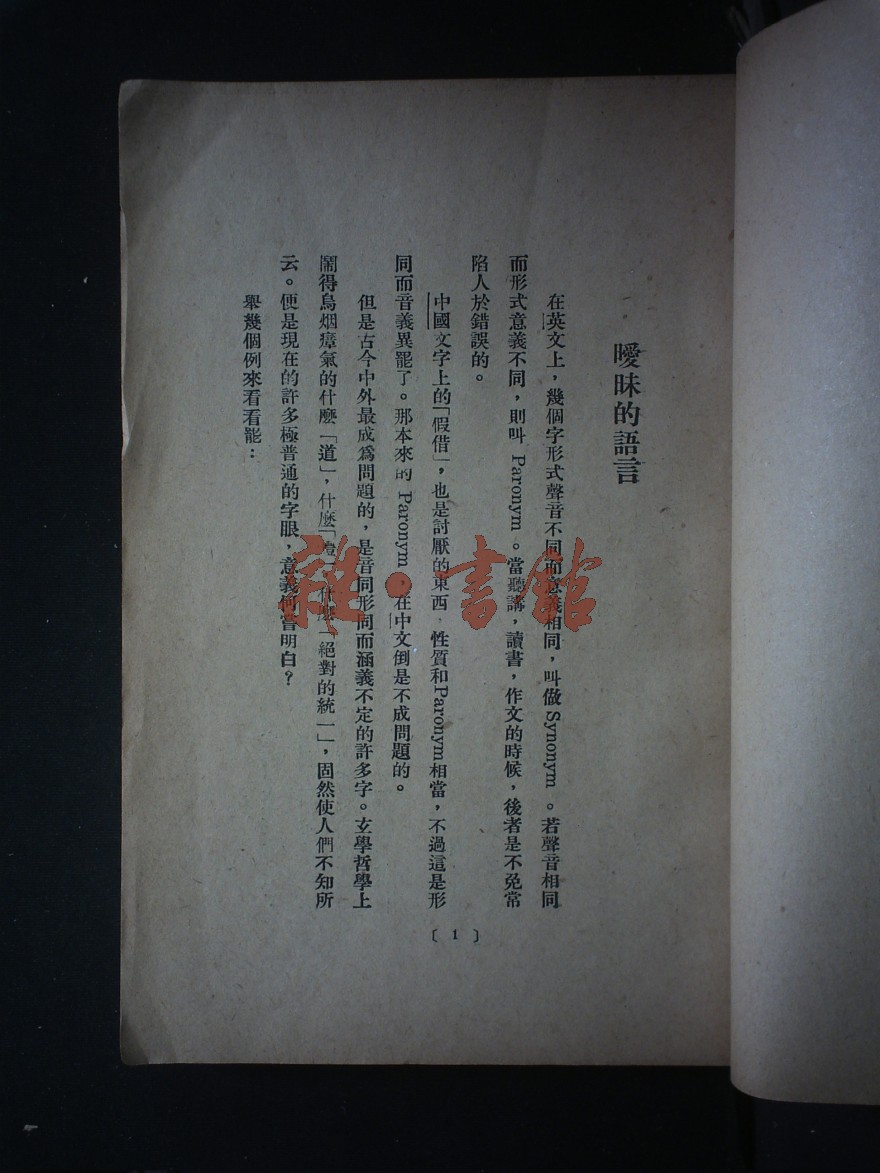 曖昧的語言
在英文上，幾個字形式聲音不同而意義相同，叫做 Synonym 。若聲音相同
而形式意義不同，則叫 Paronym 。當聽講，讀書，作文的時候，後者是不免常
陷人於錯誤的。
中國文字上的「假借」，也是討厭的東西，性質和Paronym相當，不過這是形
同而音義異罷了。那本來的 Paronym 在中文倒是不成問題的。
但是古今中外最成爲問題的，是音同形同而涵義不定的許多字。玄學哲學上
鬧得烏烟瘴氣的什麼「道」，什麼「 什麼「絕對的統一」，固然使人們不知所
云。便是現在的許多極普通的字眼，意義何嘗明白？
舉幾個例來看看罷：
〔 1 〕
雜·書館